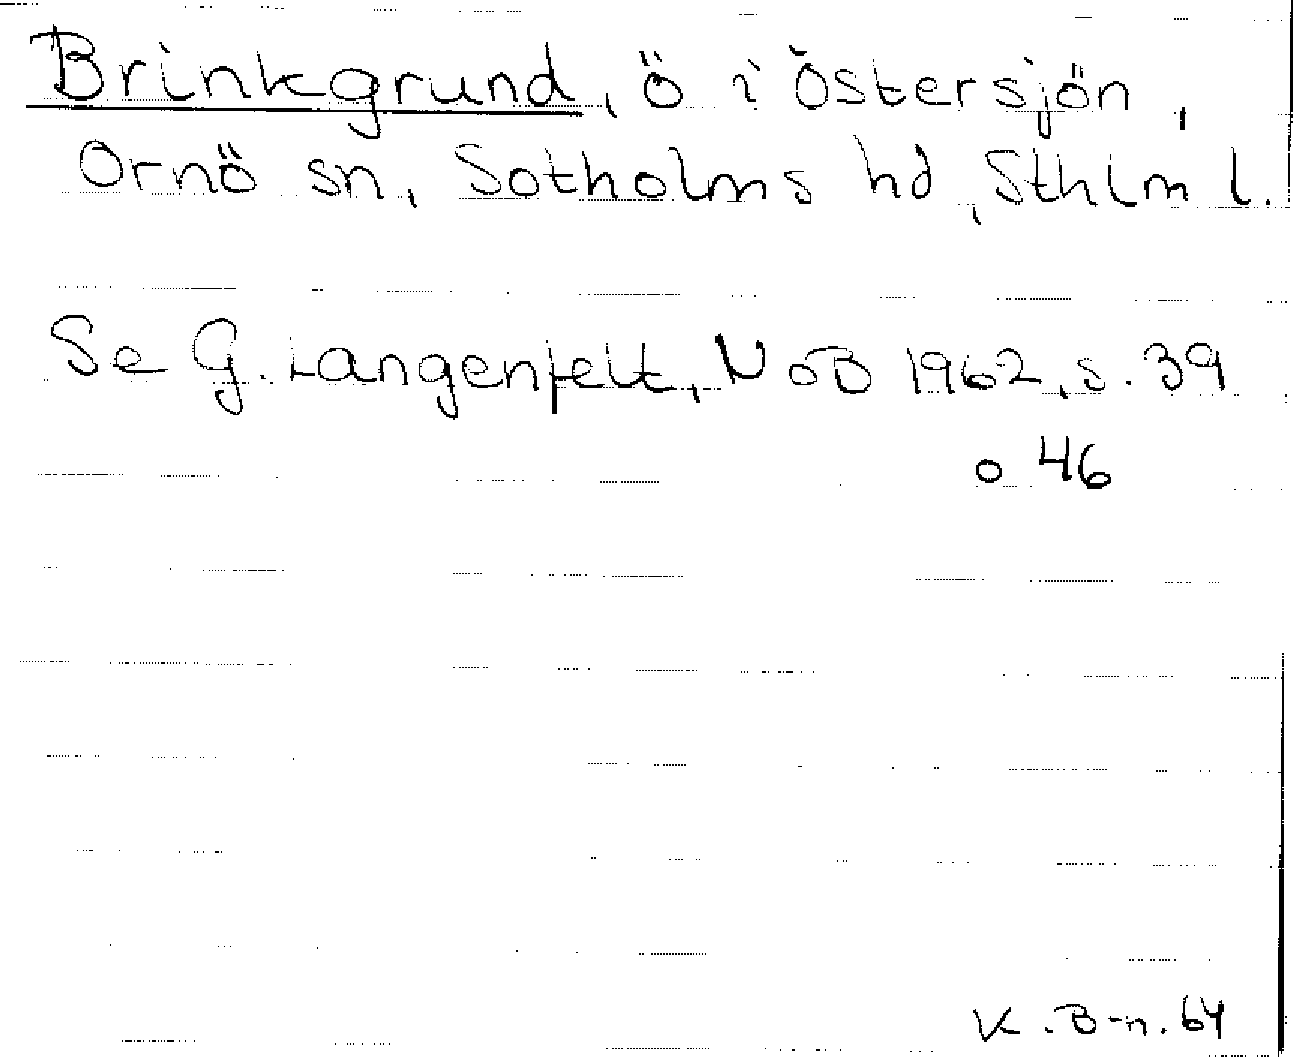 Brinkgrund, ö i Östersjön,
Ornö sn, Sotholms hd, Sthlm l.
Se G. Langenfelt, NoB 1962, s. 39
o 46
K. B-n. 64